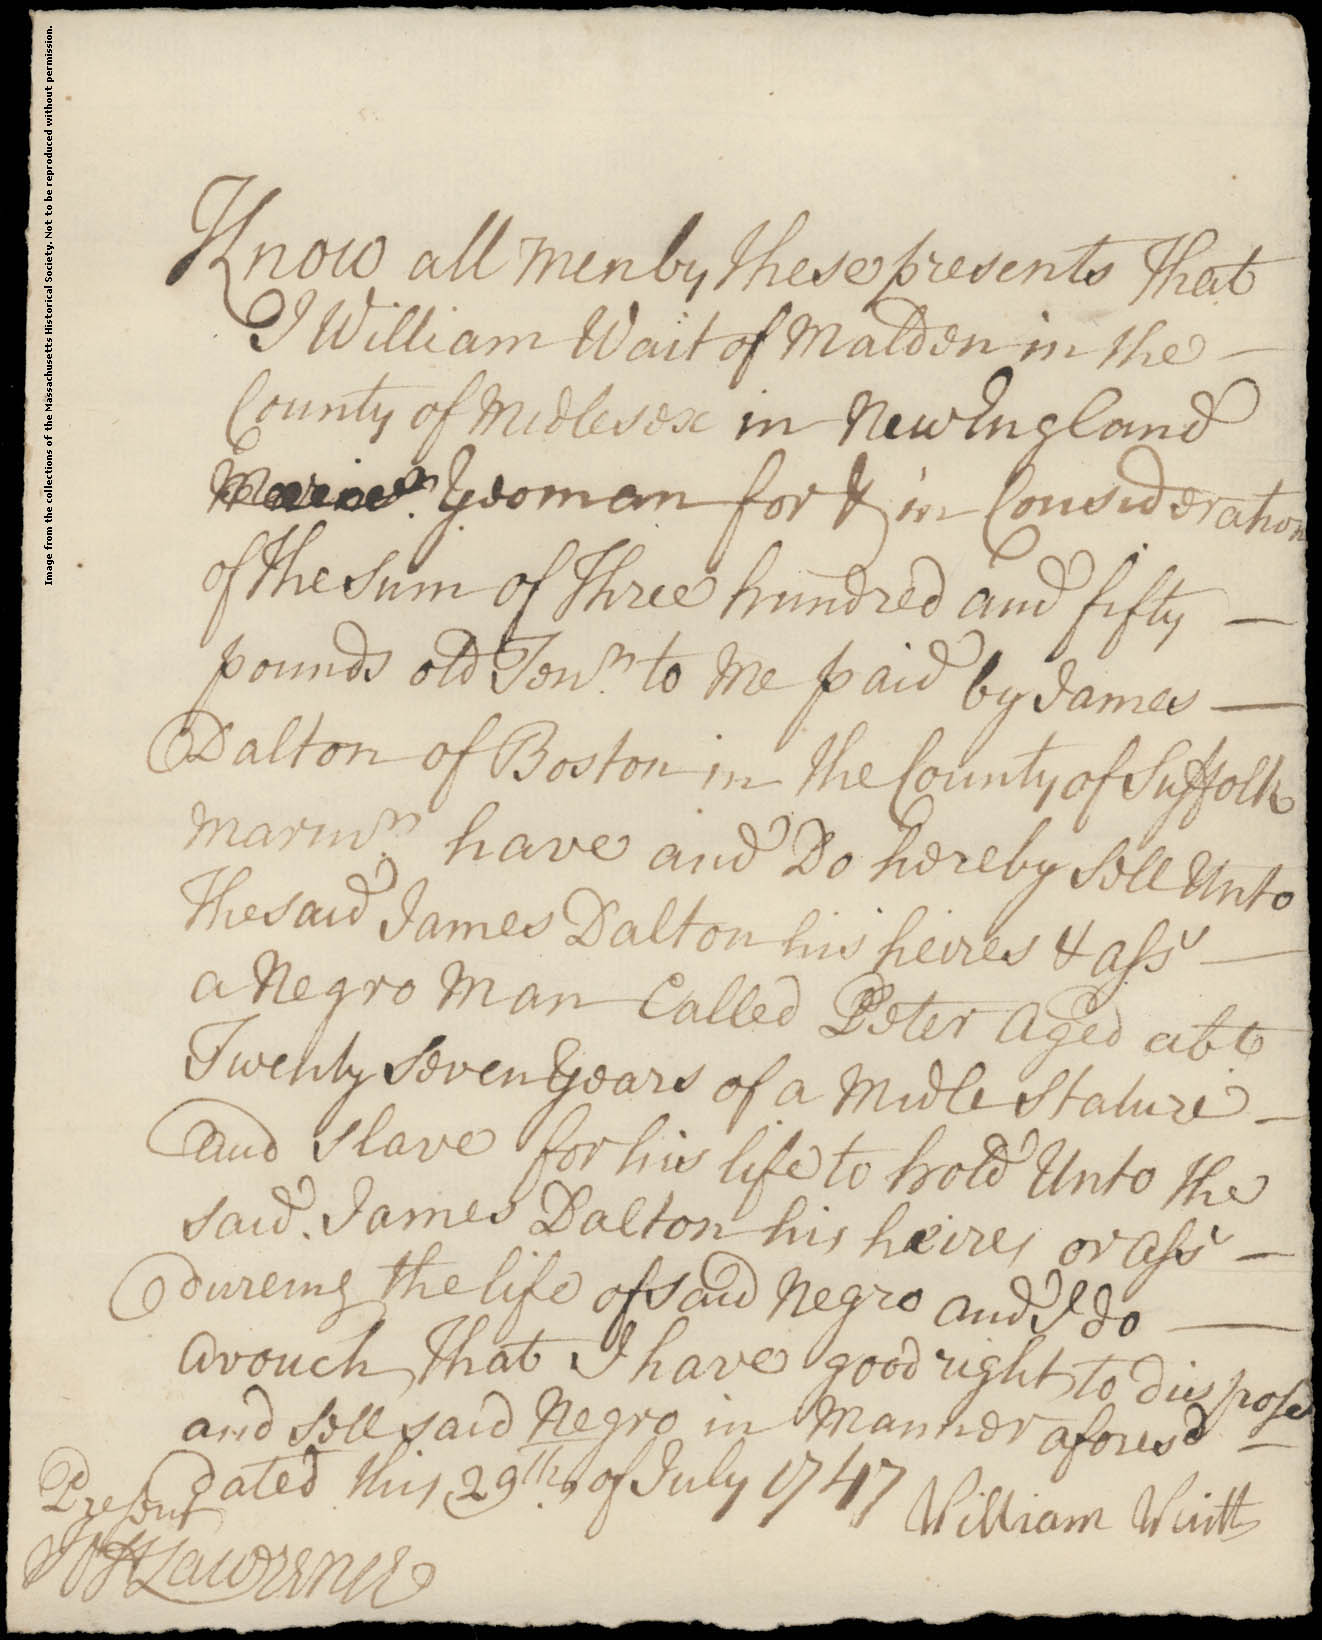 Image from the collections of the Massachusetts Historical Society. Not to be reproduced without permission.
Know all men by these presents That
I William Wait of Malden in the
County of Midlesex in New England
Yeoman for & in Consideration
of the sum of Three hundred and fifty
pounds old Tenr. to me paid by James
Dalton of Boston in the County of Suffolk
marinr. have and Do hereby Sell Unto
The said James Dalton his heires & asss
a Negro Man Called Peter Aged abt
Twenty Seven Years of a Midle Stature
and slave for his life to hold Unto the
said. James Dalton his heires or asss
dureing the life of said Negro and I do
avouch That I have good right to dispose
and Sell said Negro in Manner aforesd
Dated this 29th. of July 1747
William Waitt
Present
Lawrence